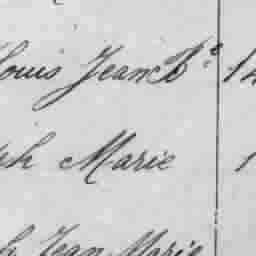 Louis Jean Bte 14
ph Marie 1
h Jean Marie